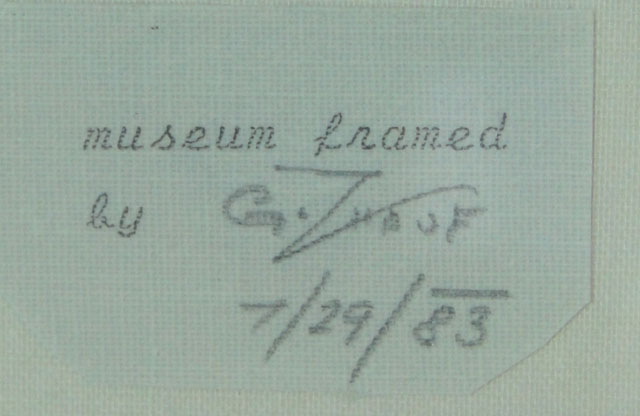 museum framed
by G.
7/29/83